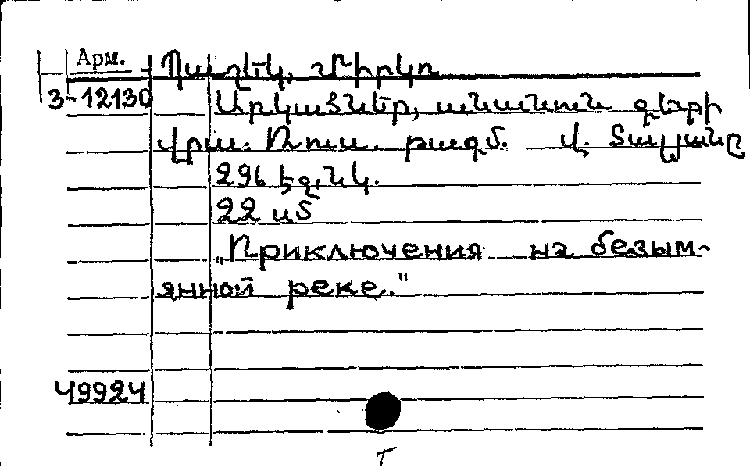 Арм.
Պաշեկ, Միրկո
3-12130
Արկածներ, անանուն գետի
վրա. Ռուս. թարգմ. Վ. Տալյանը
296 էջ, նկ.
22 սմ
„Приключения на безым-
янной реке."
49924
T